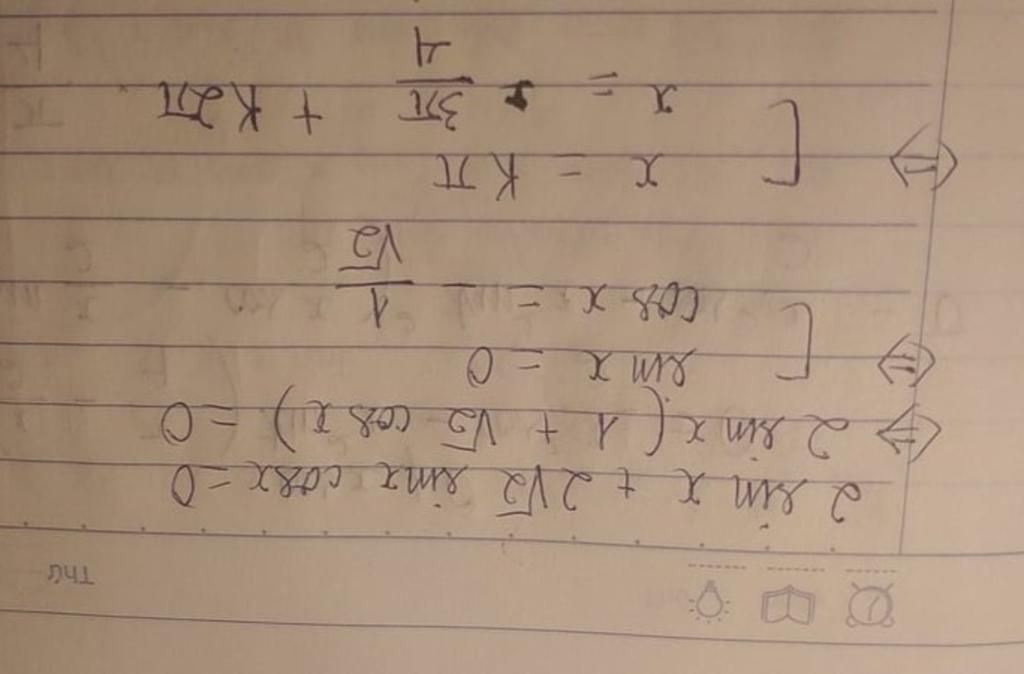 Thứ
2 sin x + 2√2 sin x cos x = 0
⇔ 2 sin x (1 + √2 cos x) = 0
⇔ [ sin x = 0
cos x = - 1/√2
⇔ [ x = kπ
x = 3π/4 + k2π